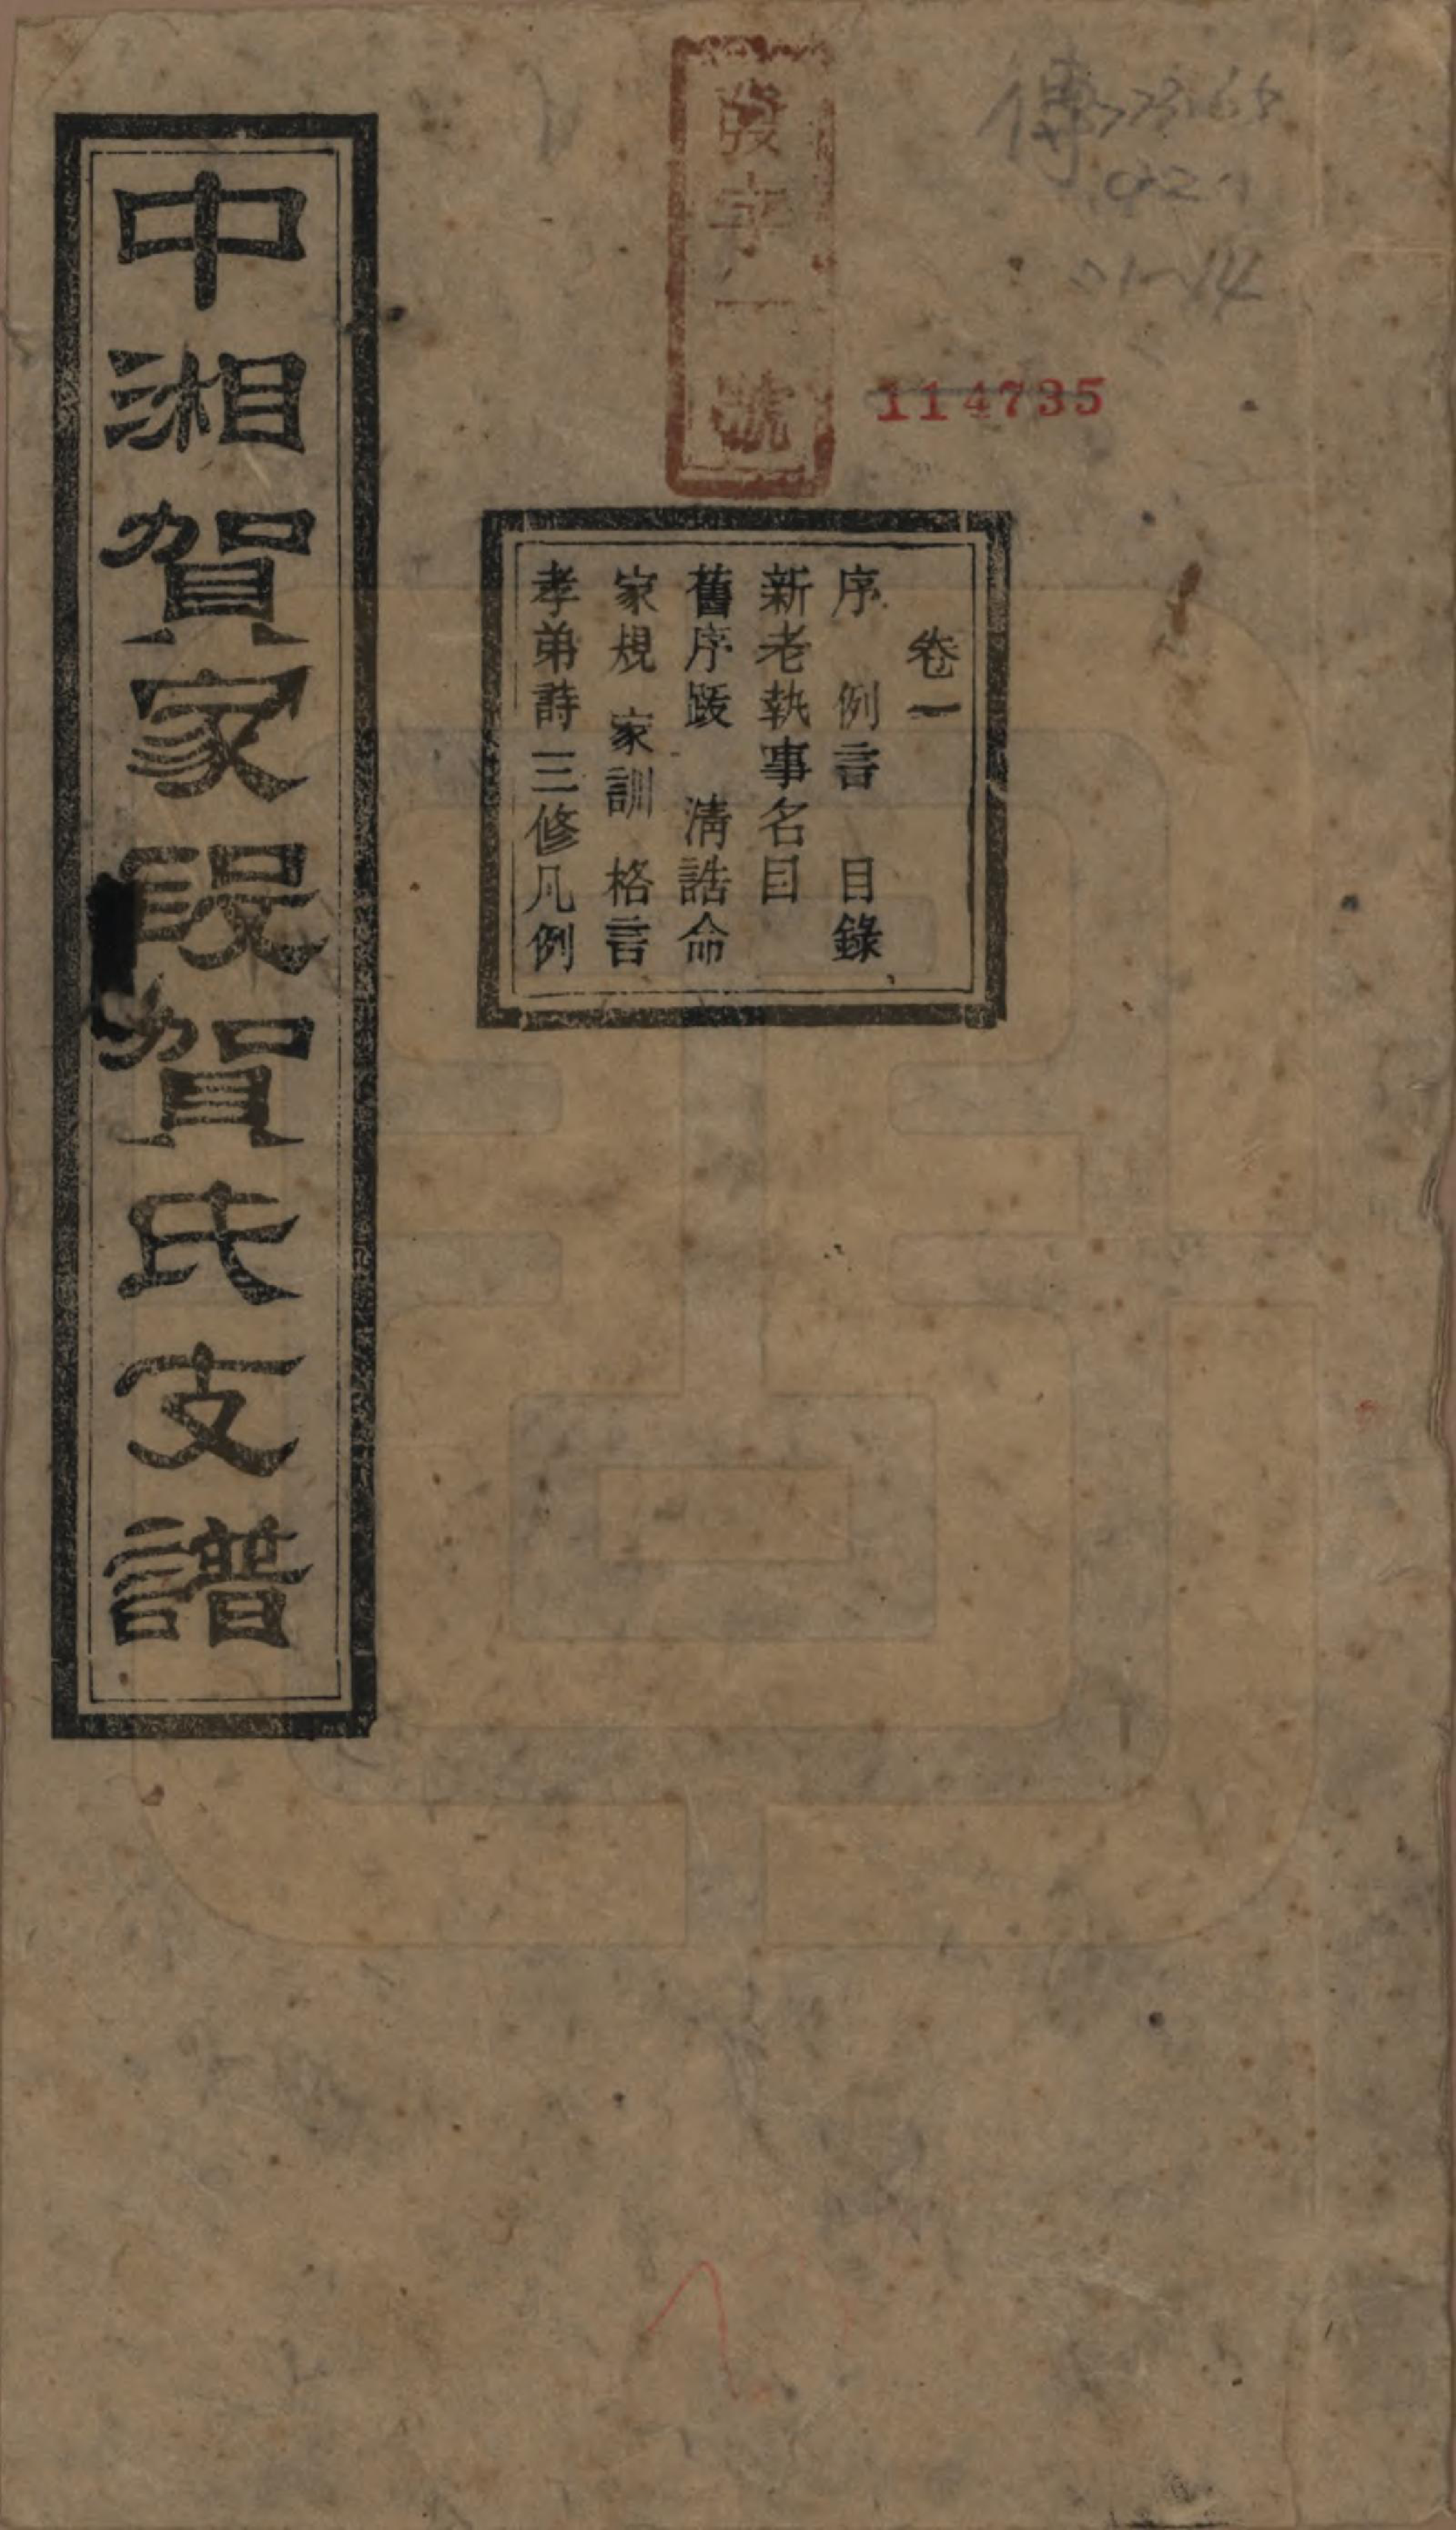 傳
114735
發字一號
卷一
序 例言 目錄
新老執事名目
舊序跋 清誥命
家規 家訓 格言
孝弟詩三修凡例
中湘賀家叚賀氏支譜